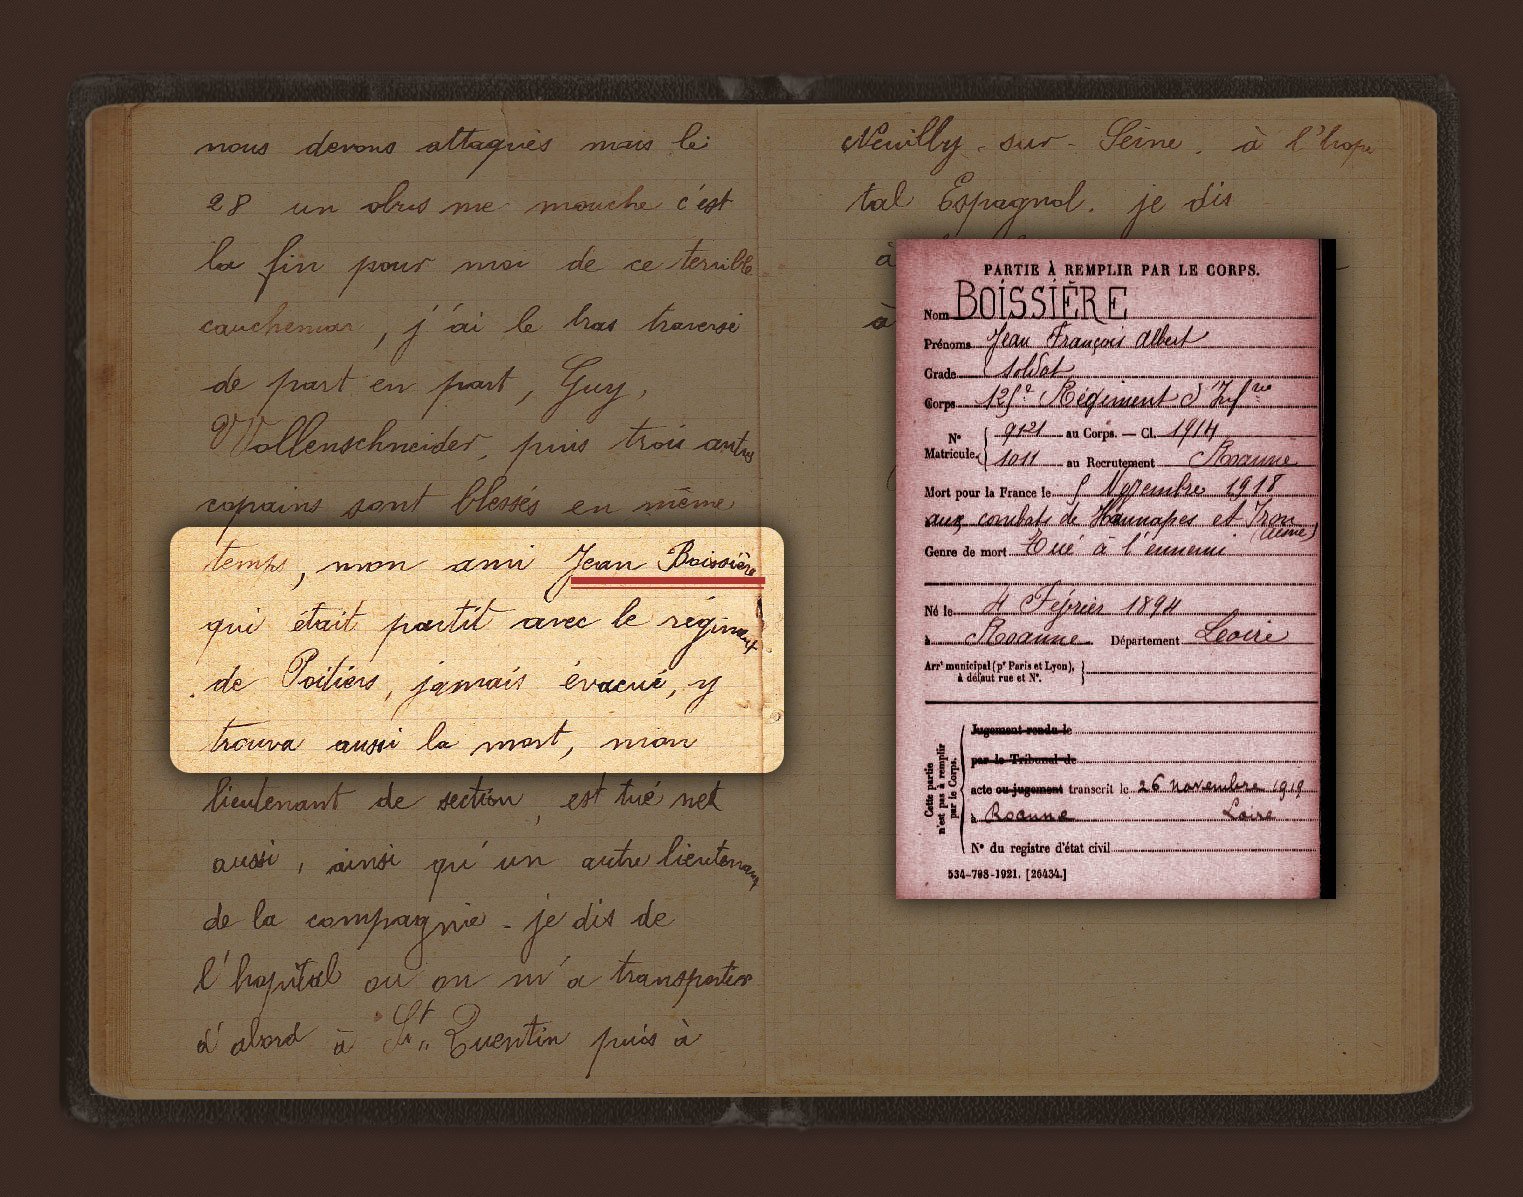 nous devons attaqués mais le
28 un obus me mouche c'est
la fin pour moi de ce terrible
cauchemar, j'ai le bras traversé
de part en part, Guy,
Wollenschneider, puis trois autres
copains sont blessés en même
temps, mon ami Jean Boissière
qui était partit avec le régiment
de Poitiers, jamais évacué, y
trouva aussi la mort, mon
lieutenant de section, est tué net
aussi, ainsi qu'un autre lieutenant
de la compagnie - je dis de
l'hopital ou on m'a transporter
d'abord à St. Quentin puis à
Neuilly-sur-Seine. à l'hopi
tal Espagnol. je dis
à
à
PARTIE À REMPLIR PAR LE CORPS.
Nom BOISSIÈRE
Prénoms Jean François Albert
Grade soldat
Corps 125e Régiment d'Infrie
N° Matricule. 9121 au Corps. — Cl. 1914
1011 au Recrutement Roanne
Mort pour la France le 5 Novembre 1918
aux combats de Hannapes et Iron (Aisne)
Genre de mort Tué à l'ennemi
Né le 4 Février 1894
à Roanne Département Loire
Arrt municipal (pr Paris et Lyon),
à défaut rue et N°.
Cette partie n'est pas à remplir par le Corps.
Jugement rendu le
par le Tribunal de
acte ou jugement transcrit le 26 novembre 1919
à Roanne Loire
N° du registre d'état civil
534-708-1921. [26434.]